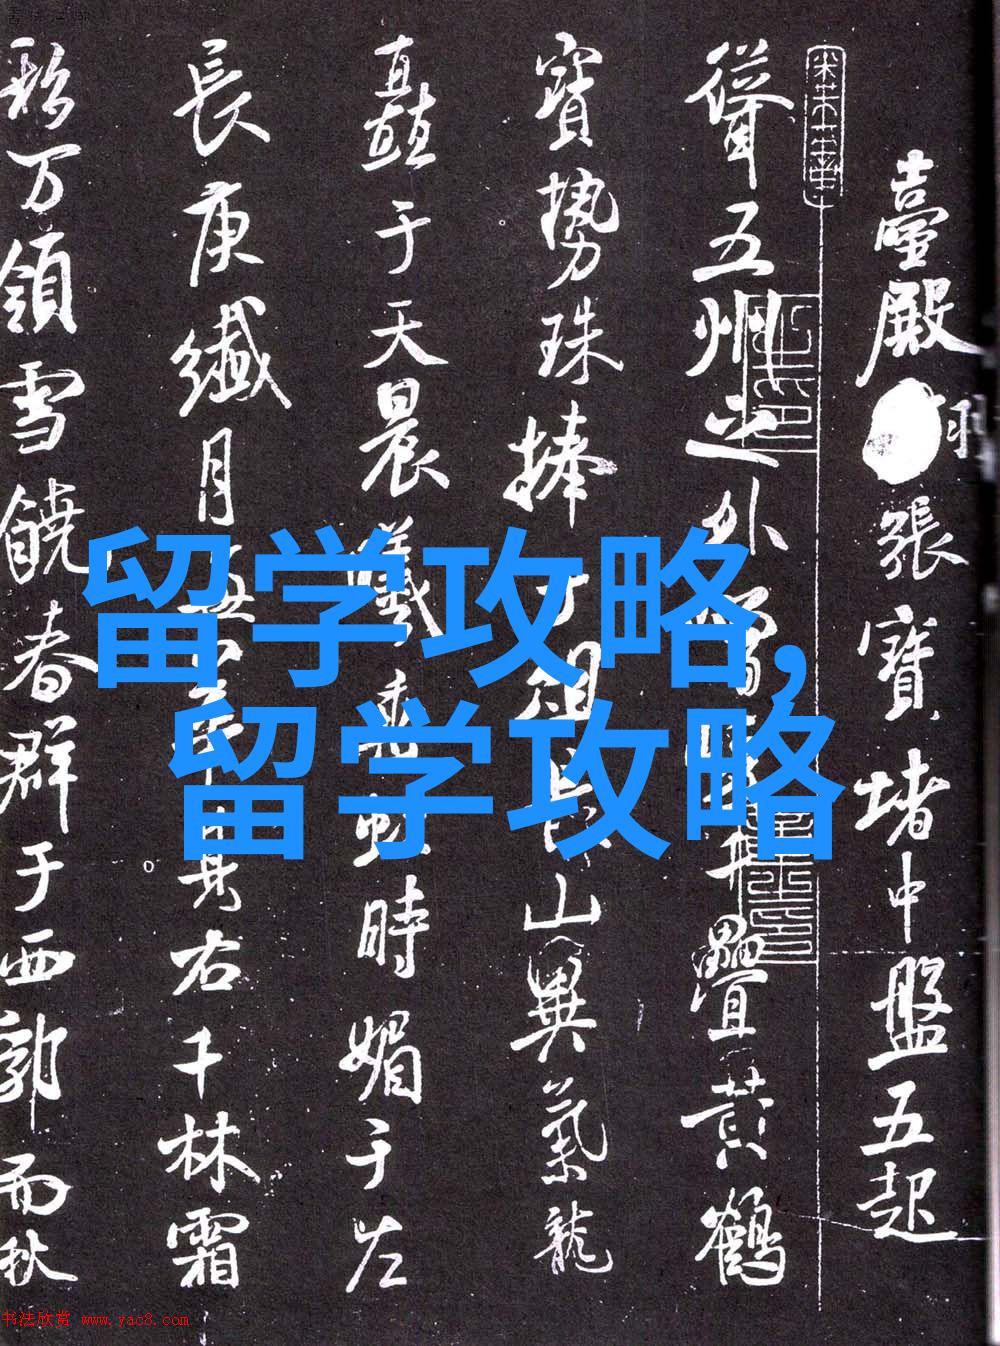 臺殿
張寶堵中盤五起
聳五州之外
疊黃鶴
寶勢珠捧
山異氣龍
矗于天晨曦
時媚于左
長庚纖月
其右千林霜
彩万嶺雪饒春群于西郭而秋
留学攻略,
留学攻略
书法欣赏 www.yac8.com